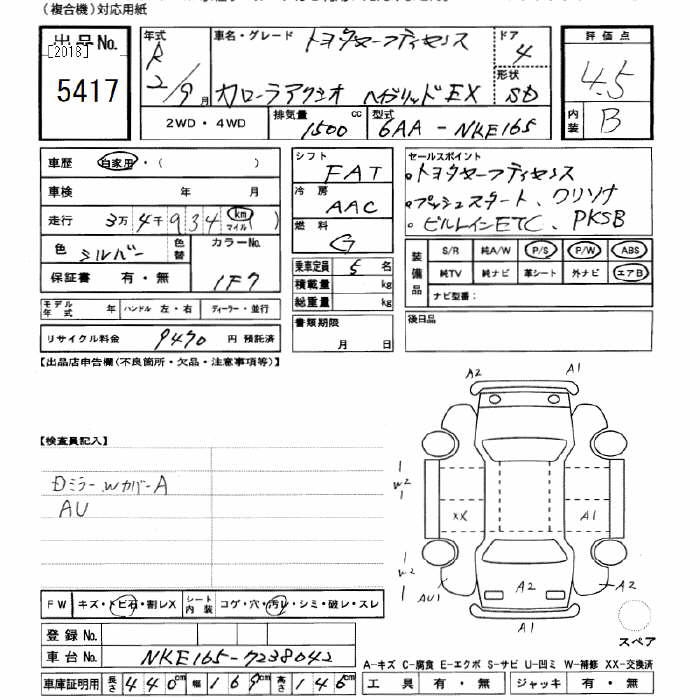 (複合機)対応用紙
出品No.
[2018]
5417
年式 R 2/9月
車名・グレード トヨタセーフティセンス
カローラアクシオ ハイブリッドEX
ドア 4
形状 SD
評価点
4.5
内装 B
2WD・4WD
排気量 1500 cc
型式 6AA-NKE165
車歴 自家用・( )
車検 年 月
走行 3万4千934 km マイル )
色 シルバー 色替 カラーNo. 1F7
保証書 有・無
モデル年式 年 ハンドル 左・右 ディーラー・並行
リサイクル料金 9470 円 預託済
シフト FAT
冷房 AAC
燃料 G
乗車定員 5 名
積載量 kg
総重量 kg
書類期限
月 日
セールスポイント
・トヨタセーフティセンス
・プッシュスタート、クリソナ
・ビルトインETC、PKSB
装備品
S/R 純A/W P/S P/W ABS
純TV 純ナビ 革シート 外ナビ エアB
ナビ型番:
後日品
【出品店申告欄(不良箇所・欠品・注意事項等)】
【検査員記入】
Dミラー、Wカバー A
AU
A2 A1
1 W2 1
XX A1
1 W2 1
AU1 A2 A2
A1
スペア
FW キズ・トビ石・割レX
シート内装 コゲ・穴・汚レ・シミ・破レ・スレ
登録No.
車台No. NKE165-7238042
車庫証明用 長さ 440cm 幅 169cm 高さ 146cm
A-キズ C-腐食 E-エクボ S-サビ U-凹ミ W-補修 XX-交換済
工具 有・無 ジャッキ 有・無